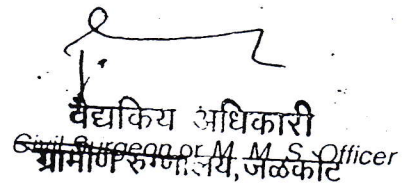 वैद्यकिय अधिकारी
Civil Surgeon or M. M. S. Officer
ग्रामीण रुग्णालय, जळकोट